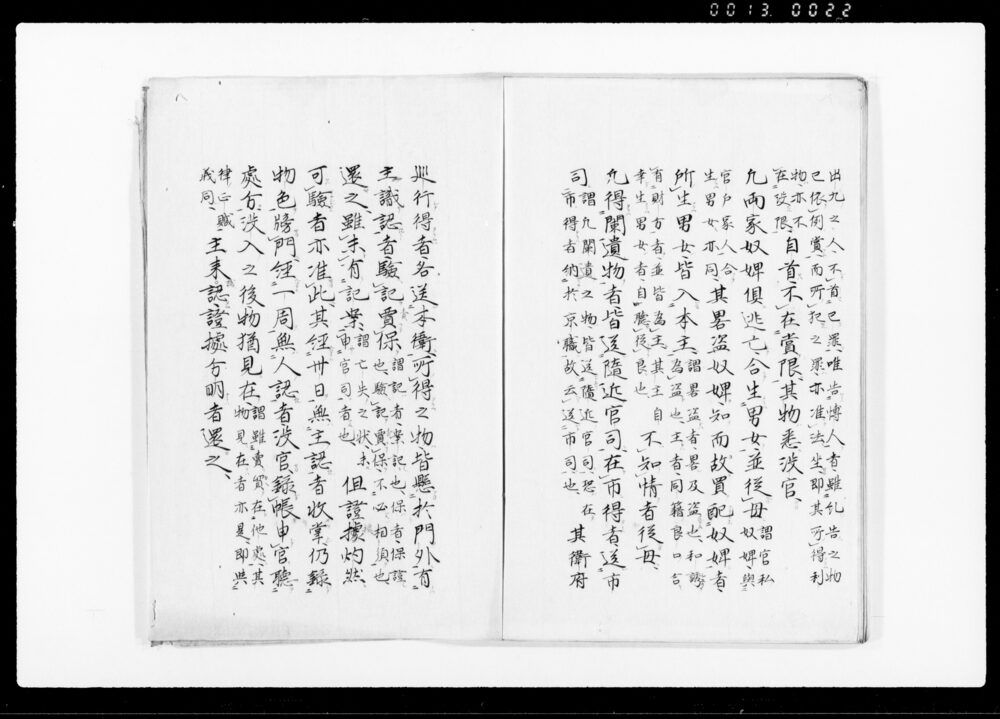 0013 0022
出九之人不首已罪唯告博人者雖乱告之物
已依例賞而所犯之罪亦准法坐即其所得利
物亦不
在沒限 自首不在賞限其物悉沒官
凡兩家奴婢俱逃亡合生男女並從母 謂官私
奴婢與
官戸家人合
生男女亦同 其畧盗奴婢知而故買配奴婢者
所生男女皆入本主 謂畧盗者畧及盗也和誘
為盗也主者同籍良口合
有財分者並皆為主其主自
幸生男女者自聽從良也 不知情者從母
凡得闌遺物者皆送隨近官司在市得者送市
司 謂凡闌遺之物皆送隨近官司恐在
市得者納於京職故云送市司也 其衛府
巡行得者各送本衛所得之物皆懸於門外有
主識認者驗記責保 謂記者案記也保者保證
也驗記責保不必相須也
還之雖未有記案 謂亡失之状未
申官司者也 但證據灼然
可驗者亦准此其経卅日無主認者收掌仍録
物色牓門経一周無人認者沒官録帳申官聽
處分沒入之後物猶見在 謂雖賣買在他處其
物見在者亦是即與
律正贓
義同 主来認證據分明者還之